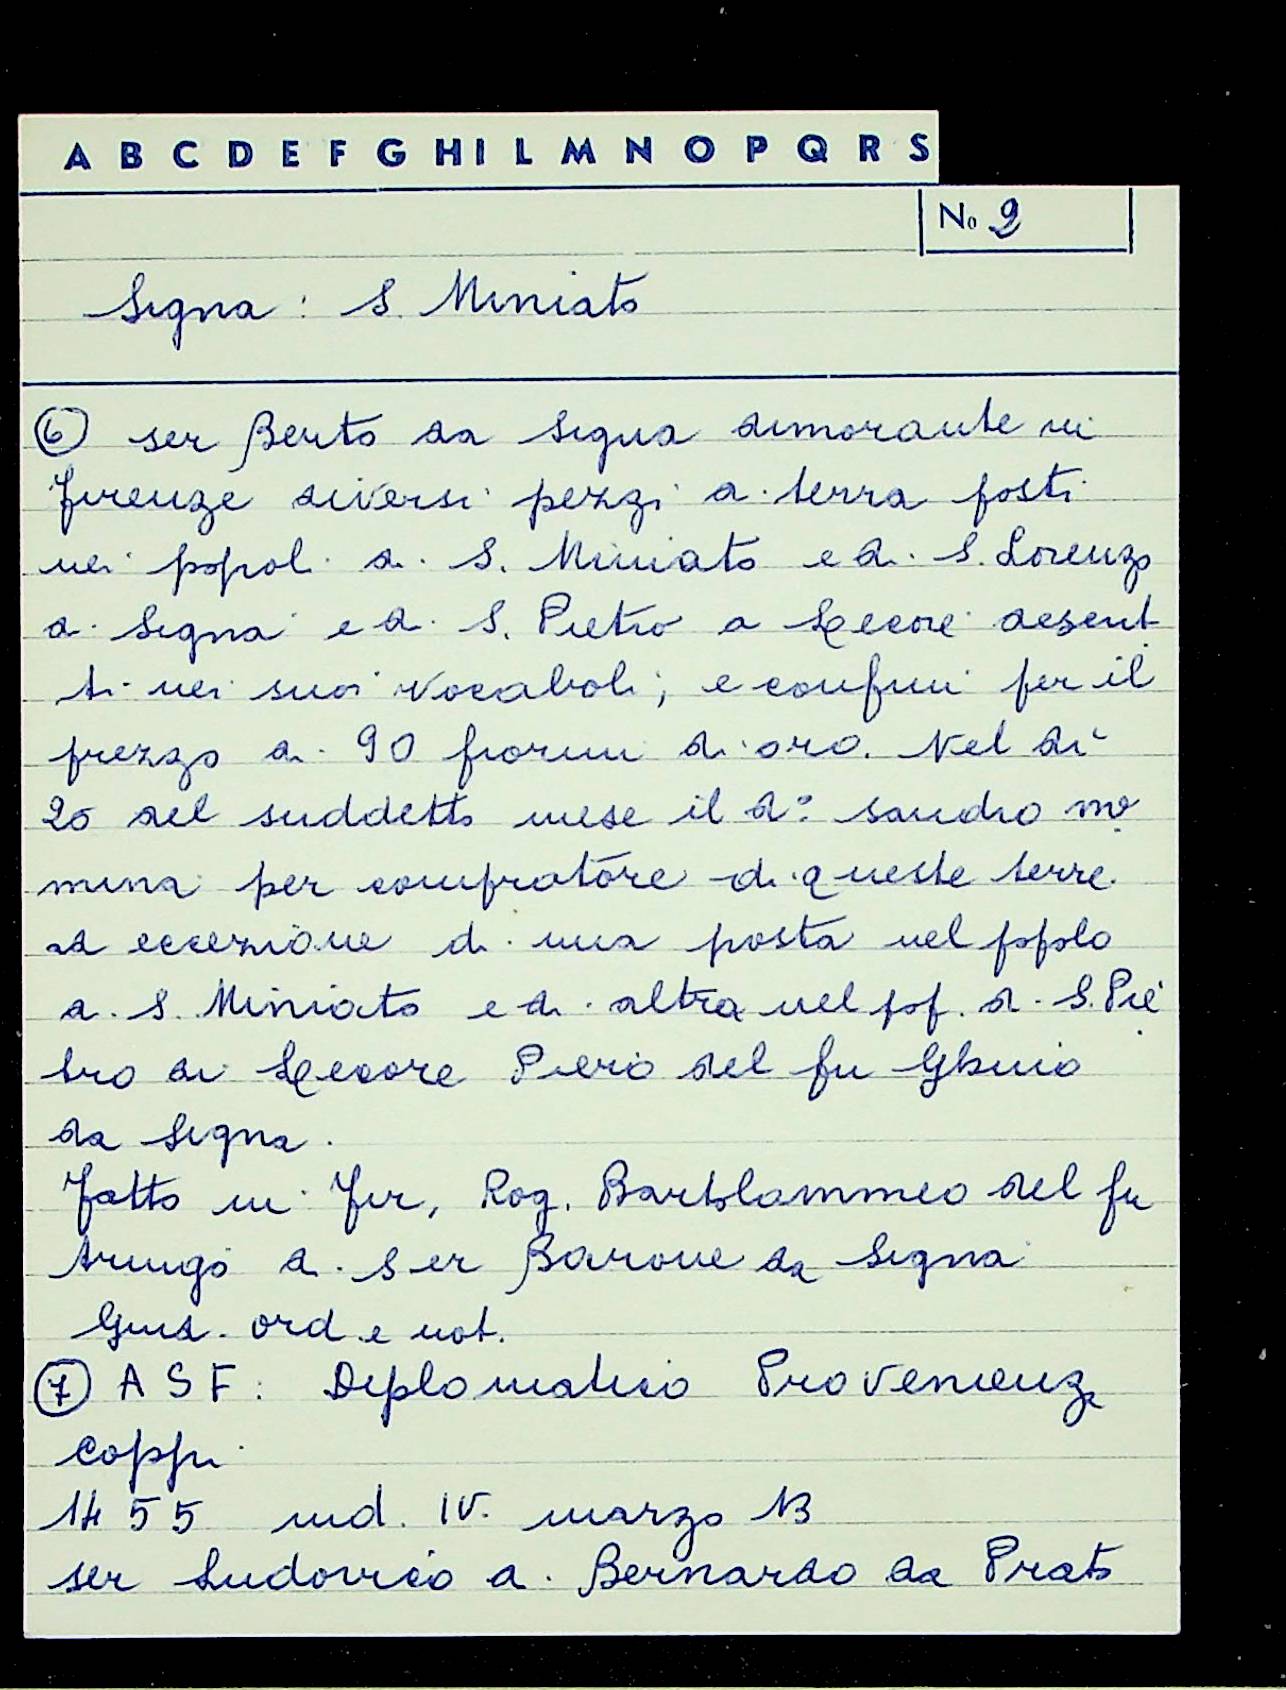 A B C D E F G H I L M N O P Q R S
No 9
Signa: S. Miniato
⑥ ser Berto da Signa dimorante in
Firenze diversi pezzi di terra posti
nei popoli di S. Miniato e di S. Lorenzo
a Signa e di S. Pietro a Lecore descrit
ti nei suoi vocaboli, e confini per il
prezzo di 90 fiorini di oro. Nel dì
20 del suddetto mese il do: sandro no
mina per compratore di queste terre
ad eccezione di una posta nel popolo
di S. Miniato e di altra nel pop. di S. Pie
tro di Lecore Piero del fu
da Signa.
Fatto in Fir, Rog. Bartolammeo del fu
di ser Barone da Signa
Giud. ord e not.
⑦ A S F: Diplomatico Provenienza
Coppi
1455 ind. IV. marzo 13
ser Ludovico di Bernardo da Prato